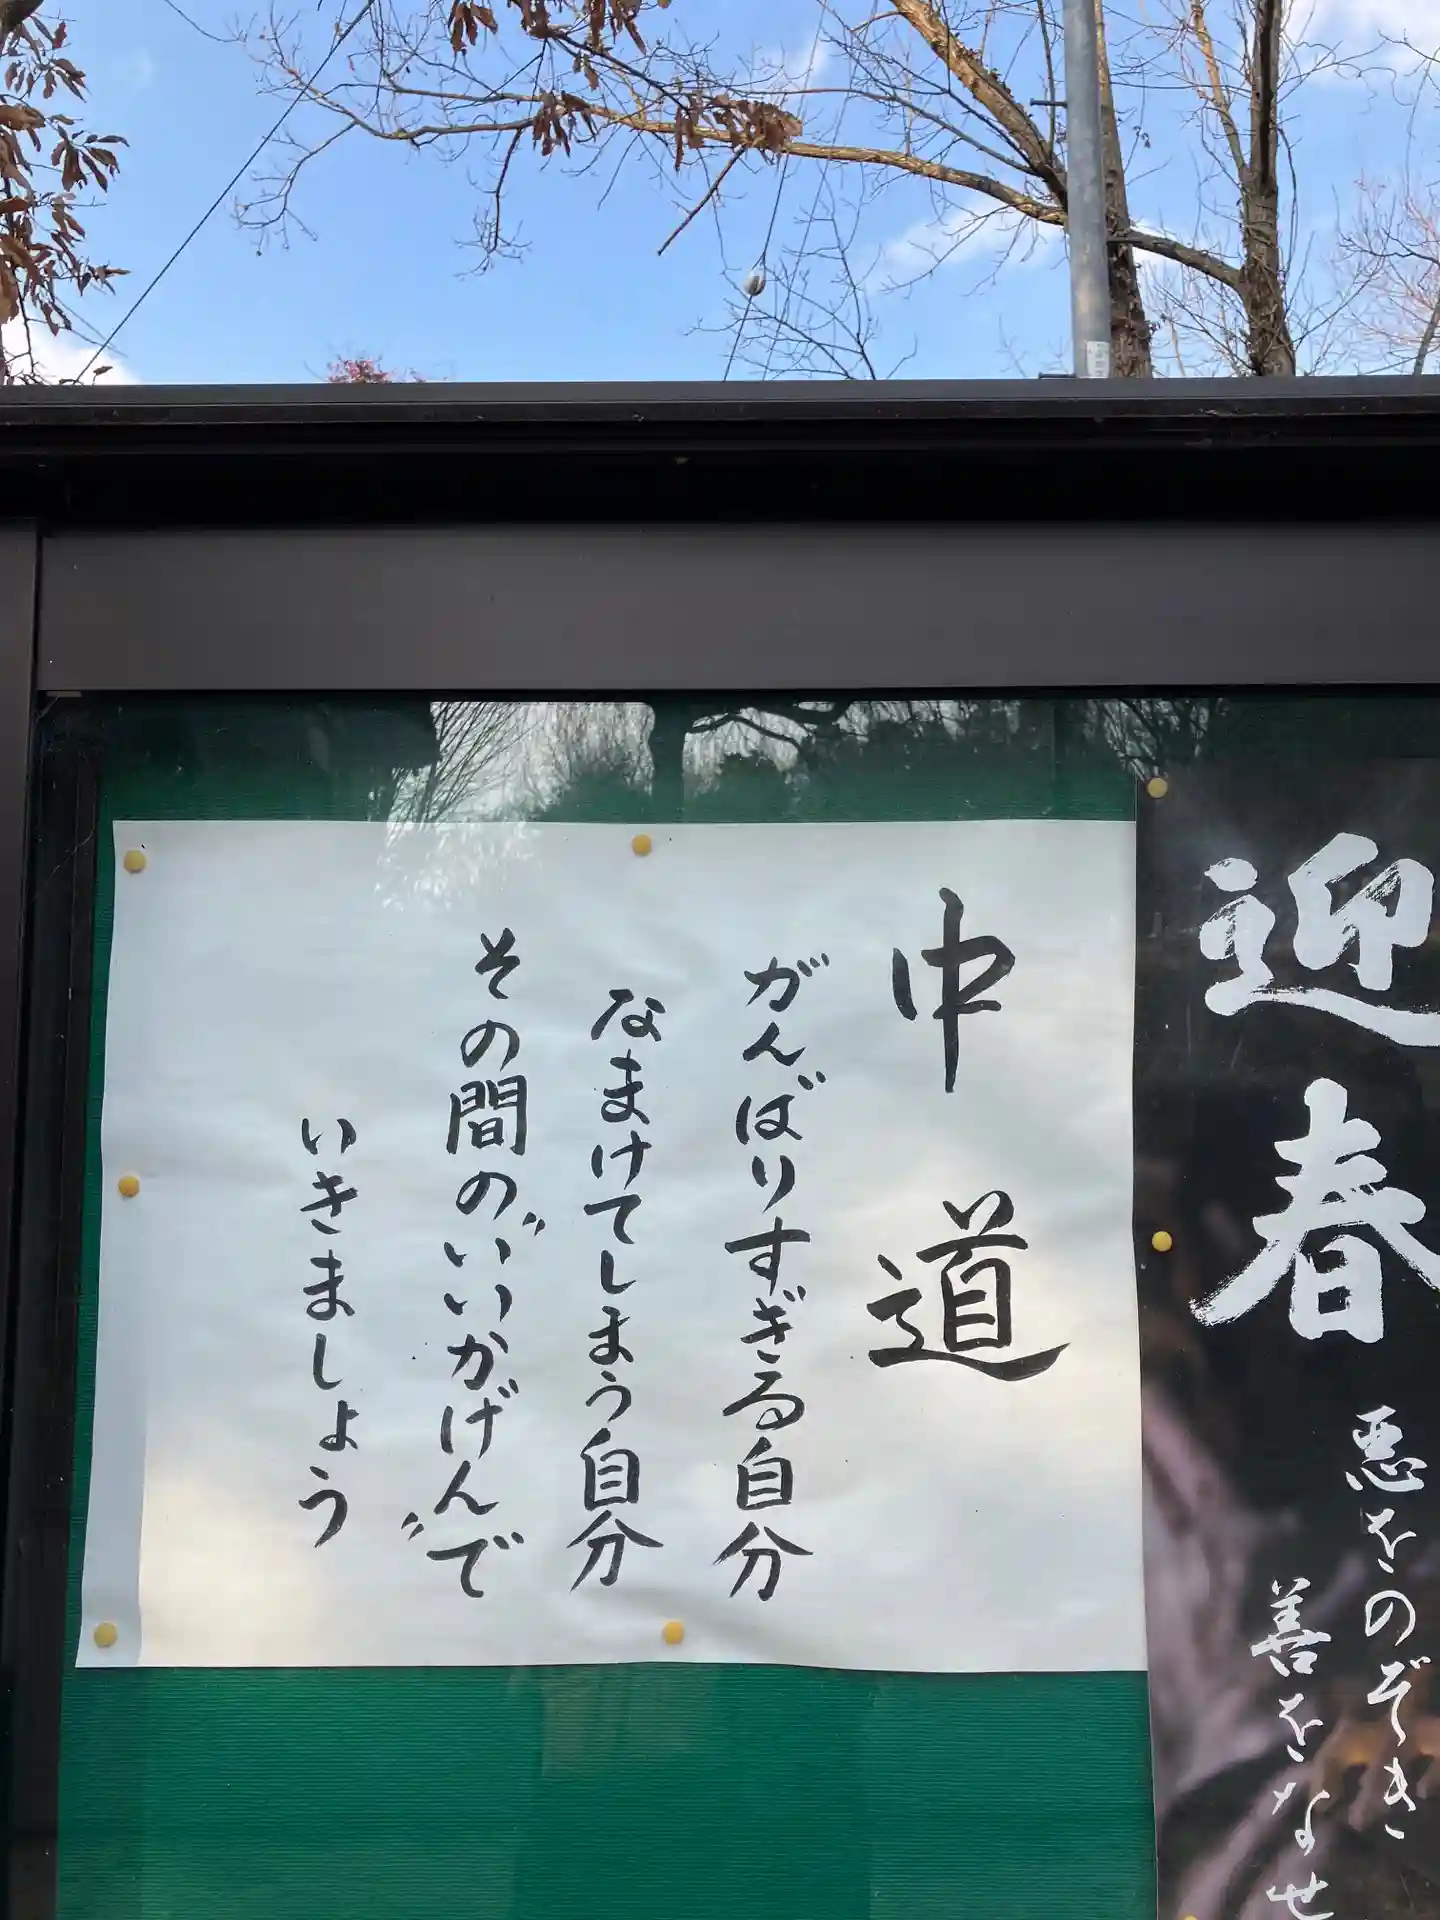 迎春
悪をのぞき
善をなせ
中道
がんばりすぎる自分
なまけてしまう自分
その間の〝いいかげん〟で
いきましょう